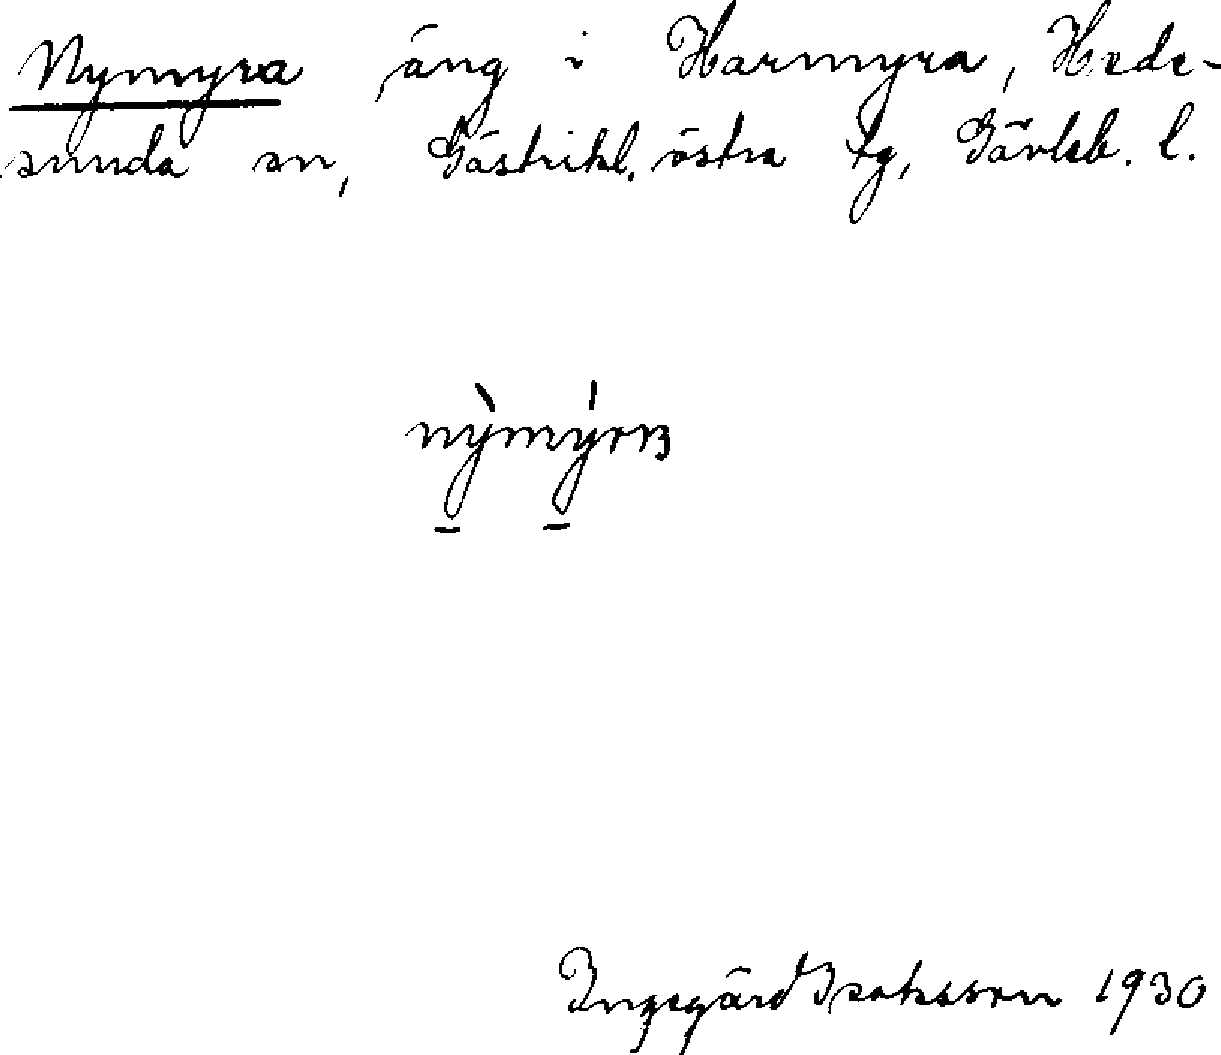 Nymyra, äng i Harmyra, Hede-
sunda sn, Gästrikl. östra tg, Gävleb. l.
nỳmýrɐ
Ingegärd Isaksson 1930